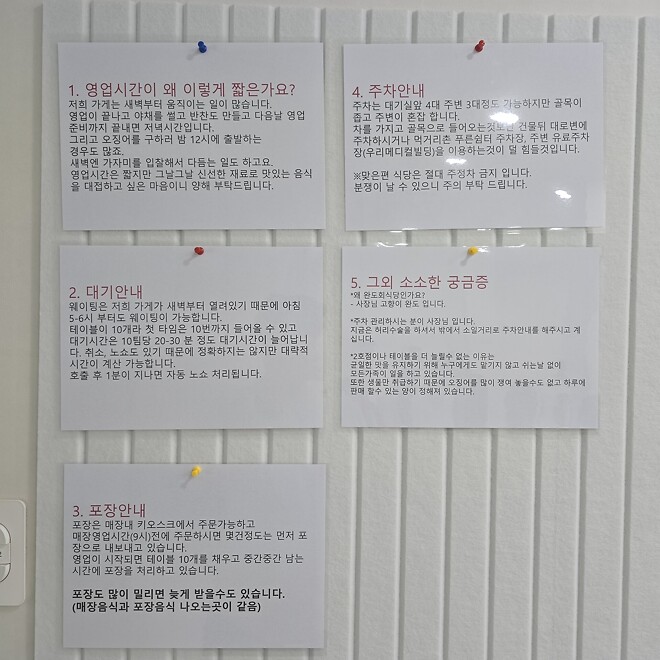 1. 영업시간이 왜 이렇게 짧은가요?
저희 가게는 새벽부터 움직이는 일이 많습니다.
영업이 끝나고 야채를 썰고 반찬도 만들고 다음날 영업
준비까지 끝내면 저녁시간입니다.
그리고 오징어를 구하러 밤 12시에 출발하는
경우도 많죠.
새벽엔 가자미를 입찰해서 다듬는 일도 하고요.
영업시간은 짧지만 그날그날 신선한 재료로 맛있는 음식
을 대접하고 싶은 마음이니 양해 부탁드립니다.
2. 대기안내
웨이팅은 저희 가게가 새벽부터 열려있기 때문에 아침
5-6시 부터도 웨이팅이 가능합니다.
테이블이 10개라 첫 타임은 10번까지 들어올 수 있고
대기시간은 10팀당 20-30 분 정도 대기시간이 늘어납니
다. 취소, 노쇼도 있기 때문에 정확하지는 않지만 대략적
시간이 계산 가능합니다.
호출 후 1분이 지나면 자동 노쇼 처리됩니다.
3. 포장안내
포장은 매장내 키오스크에서 주문가능하고
매장영업시간(9시)전에 주문하시면 몇건정도는 먼저 포
장으로 내보내고 있습니다.
영업이 시작되면 테이블 10개를 채우고 중간중간 남는
시간에 포장을 처리하고 있습니다.
포장도 많이 밀리면 늦게 받을수도 있습니다.
(매장음식과 포장음식 나오는곳이 같음)
4. 주차안내
주차는 대기실앞 4대 주변 3대정도 가능하지만 골목이
좁고 주변이 혼잡 합니다.
차를 가지고 골목으로 들어오는것보단 건물뒤 대로변에
주차하시거나 먹거리촌 푸른쉼터 주차장, 주변 유료주차
장(우리메디컬빌딩)을 이용하는것이 덜 힘들것입니다.
※맞은편 식당은 절대 주정차 금지 입니다.
분쟁이 날 수 있으니 주의 부탁 드립니다.
5. 그외 소소한 궁금증
*왜 완도회식당인가요?
- 사장님 고향이 완도 입니다.
*주차 관리하시는 분이 사장님 입니다.
지금은 허리수술을 하셔서 밖에서 소일거리로 주차안내를 해주시고 계
십니다.
*2호점이나 테이블을 더 늘릴수 없는 이유는
균일한 맛을 유지하기 위해 누구에게도 맡기지 않고 쉬는날 없이
모든가족이 일을 하고 있습니다.
또한 생물만 취급하기 때문에 오징어를 많이 쟁여 놓을수도 없고 하루에
판매 할수 있는 양이 정해져 있습니다.